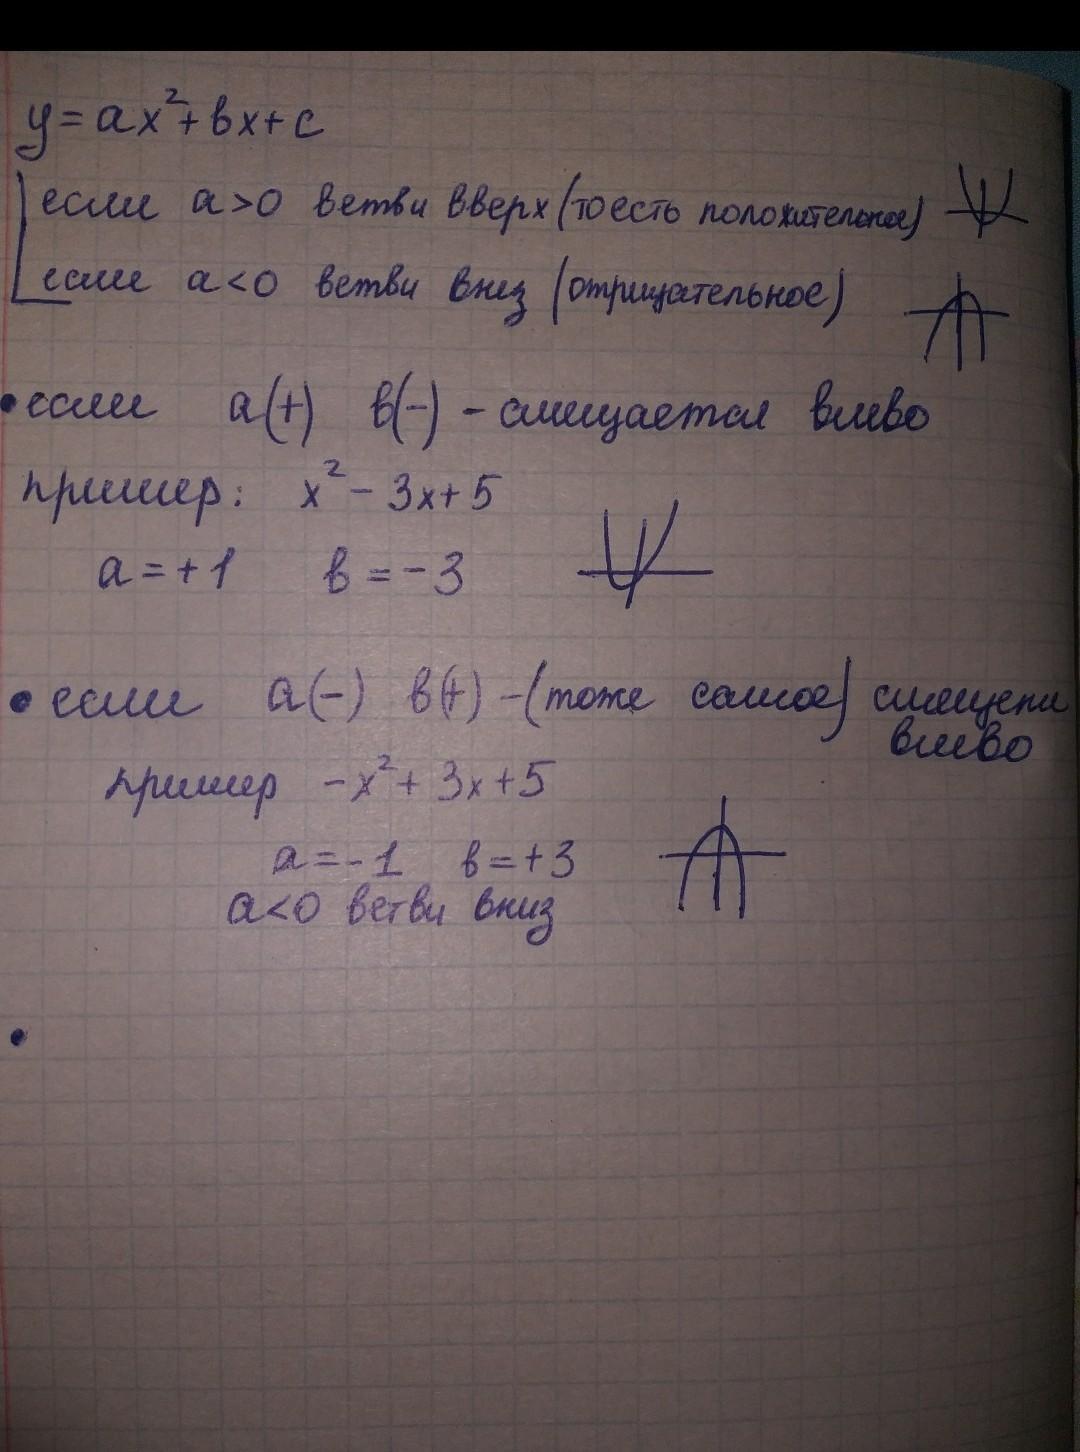 y=ax²+bx+c
если a>0 ветви вверх (тоесть положительное)
если a<0 ветви вниз (отрицательное)
• если a(+) b(-) - смещается влево
пример: x²-3x+5
a=+1 b=-3
• если a(-) b(+) - (тоже самое) смещени
влево
пример -x²+3x+5
a=-1 b=+3
a<0 ветви вниз
•